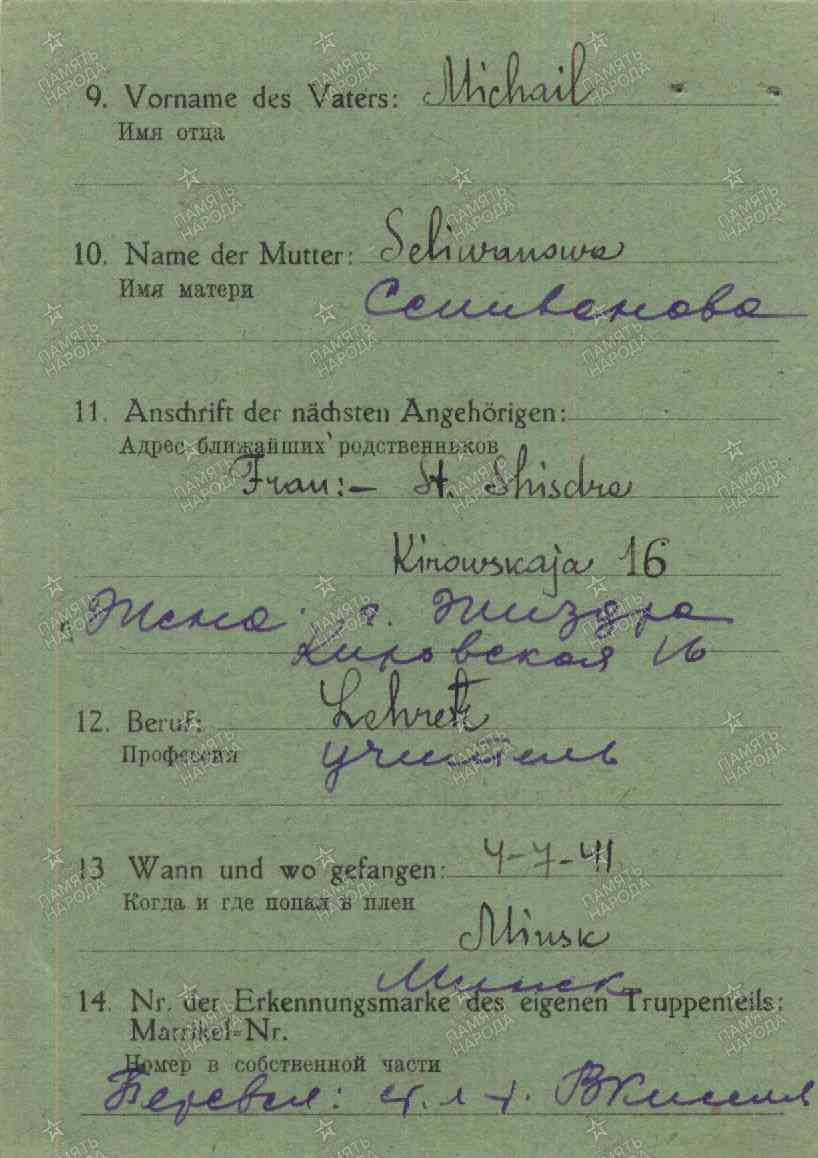 9. Vorname des Vaters: Michail
Имя отца
10. Name der Mutter: Seliwanowa
Имя матери
Селиванова
11. Anschrift der nächsten Angehörigen:
Адрес ближайших родственников
Frau:— St. Shisdra
Kirowskaja 16
Жена: г. Жиздра
Кировская 16
12. Beruf: Lehrer
Профессия учитель
13 Wann und wo gefangen: 4-7-41
Когда и где попал в плен
Minsk
Минск
14. Nr. der Erkennungsmarke des eigenen Truppenteils:
Matrikel=Nr.
Номер в собственной части
Перевел:
ПАМЯТЬ НАРОДА